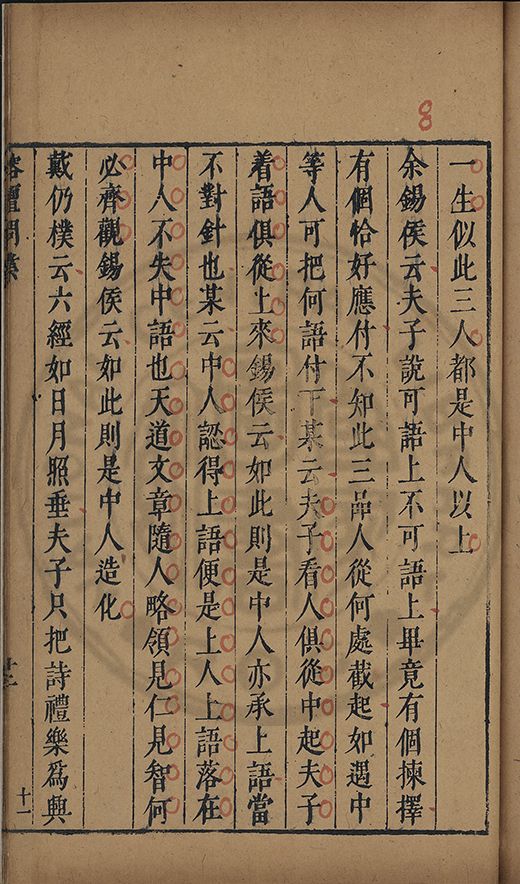 8
一生似此三人都是中人以上
余錫侯云夫子說可語上不可語上畢竟有個揀擇
有個恰好應付不知此三品人從何處截起如遇中
等人可把何語付下某云夫子看人俱從中起夫子
着語俱從上來錫侯云如此則是中人亦承上語當
不對針也某云中人認得上語便是上人上語落在
中人不失中語也天道文章隨人略領見仁見智何
必齊觀錫侯云如此則是中人造化
戴仍樸云六經如日月照垂夫子只把詩禮樂爲興
榕壇問業
十一